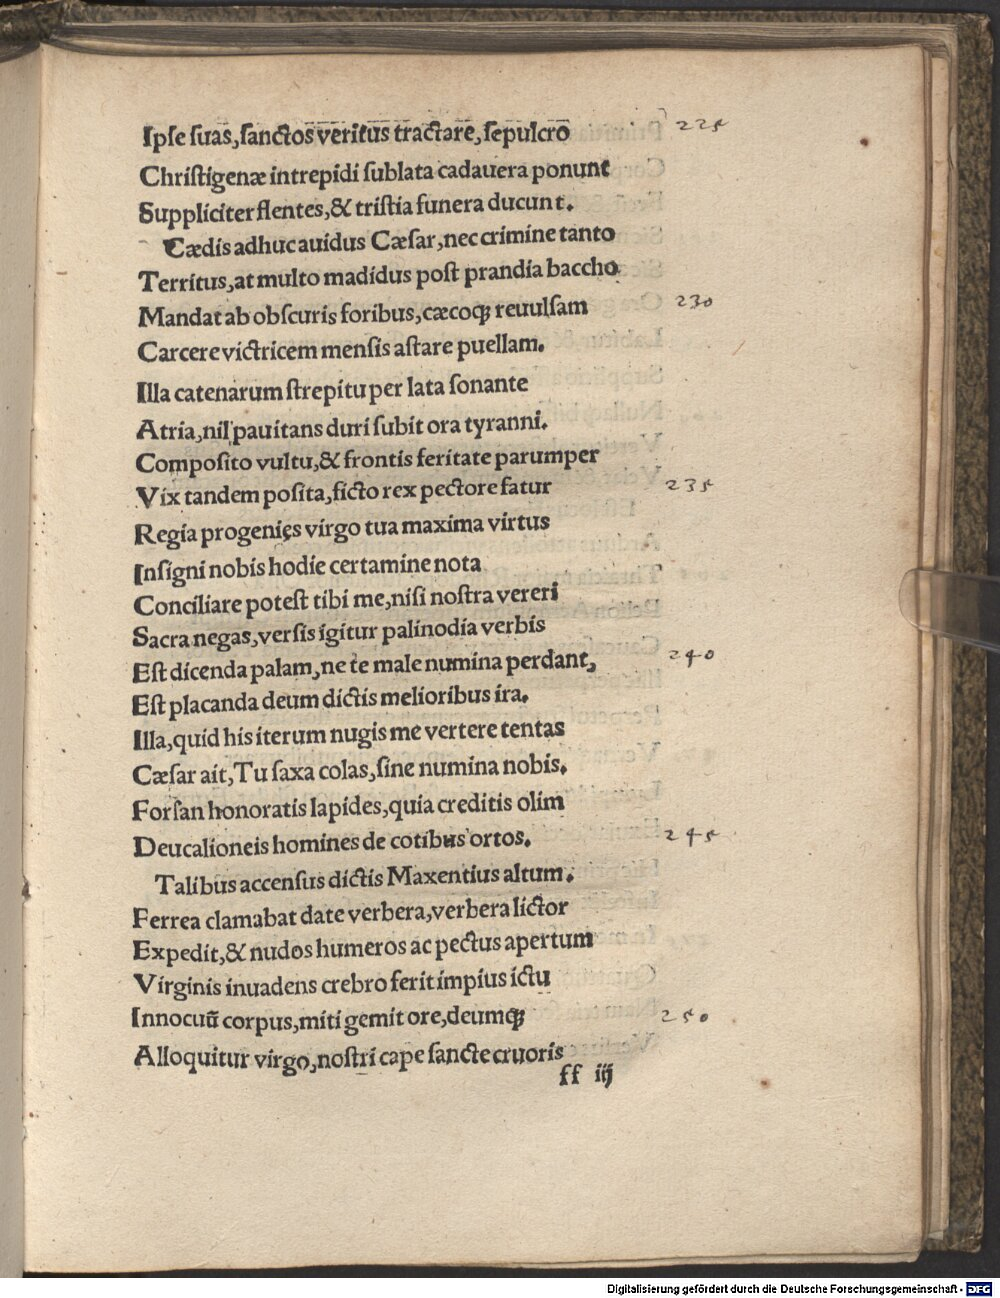 Ipſe ſuas,ſanctos veritus tractare,ſepulcro 225
Chriſtigenæ intrepidi ſublata cadauera ponunt
Suppliciter flentes,& triſtia funera ducunt.
Cædis adhuc auidus Cæſar,nec crimine tanto
Territus,at multo madidus poſt prandia baccho
Mandat ab obſcuris foribus,cæcoqꝫ reuulſam 230
Carcere victricem menſis aſtare puellam.
Illa catenarum ſtrepitu per lata ſonante
Atria,nil pauitans duri ſubit ora tyranni.
Compoſito vultu,& frontis feritate parumper
Vix tandem poſita,ficto rex pectore fatur 235
Regia progenięs virgo tua maxima virtus
Inſigni nobis hodie certamine nota
Conciliare poteſt tibi me,niſi noſtra vereri
Sacra negas,verſis igitur palinodia verbis
Eſt dicenda palam,ne te male numina perdant, 240
Eſt placanda deum dictis melioribus ira.
Illa,quid his iterum nugis me vertere tentas
Cæſar ait,Tu ſaxa colas,ſine numina nobis.
Forſan honoratis lapides,quia creditis olim
Deucalioneis homines de cotibus ortos. 245
Talibus accenſus dictis Maxentius altum.
Ferrea clamabat date verbera,verbera lictor
Expedit,& nudos humeros ac pectus apertum
Virginis inuadens crebro ferit impius ictu
Innocuū corpus,miti gemit ore,deumqꝫ 250
Alloquitur virgo,noſtri cape ſancte cruoris
ff iij
Digitalisierung gefördert durch die Deutsche Forschungsgemeinschaft - DFG